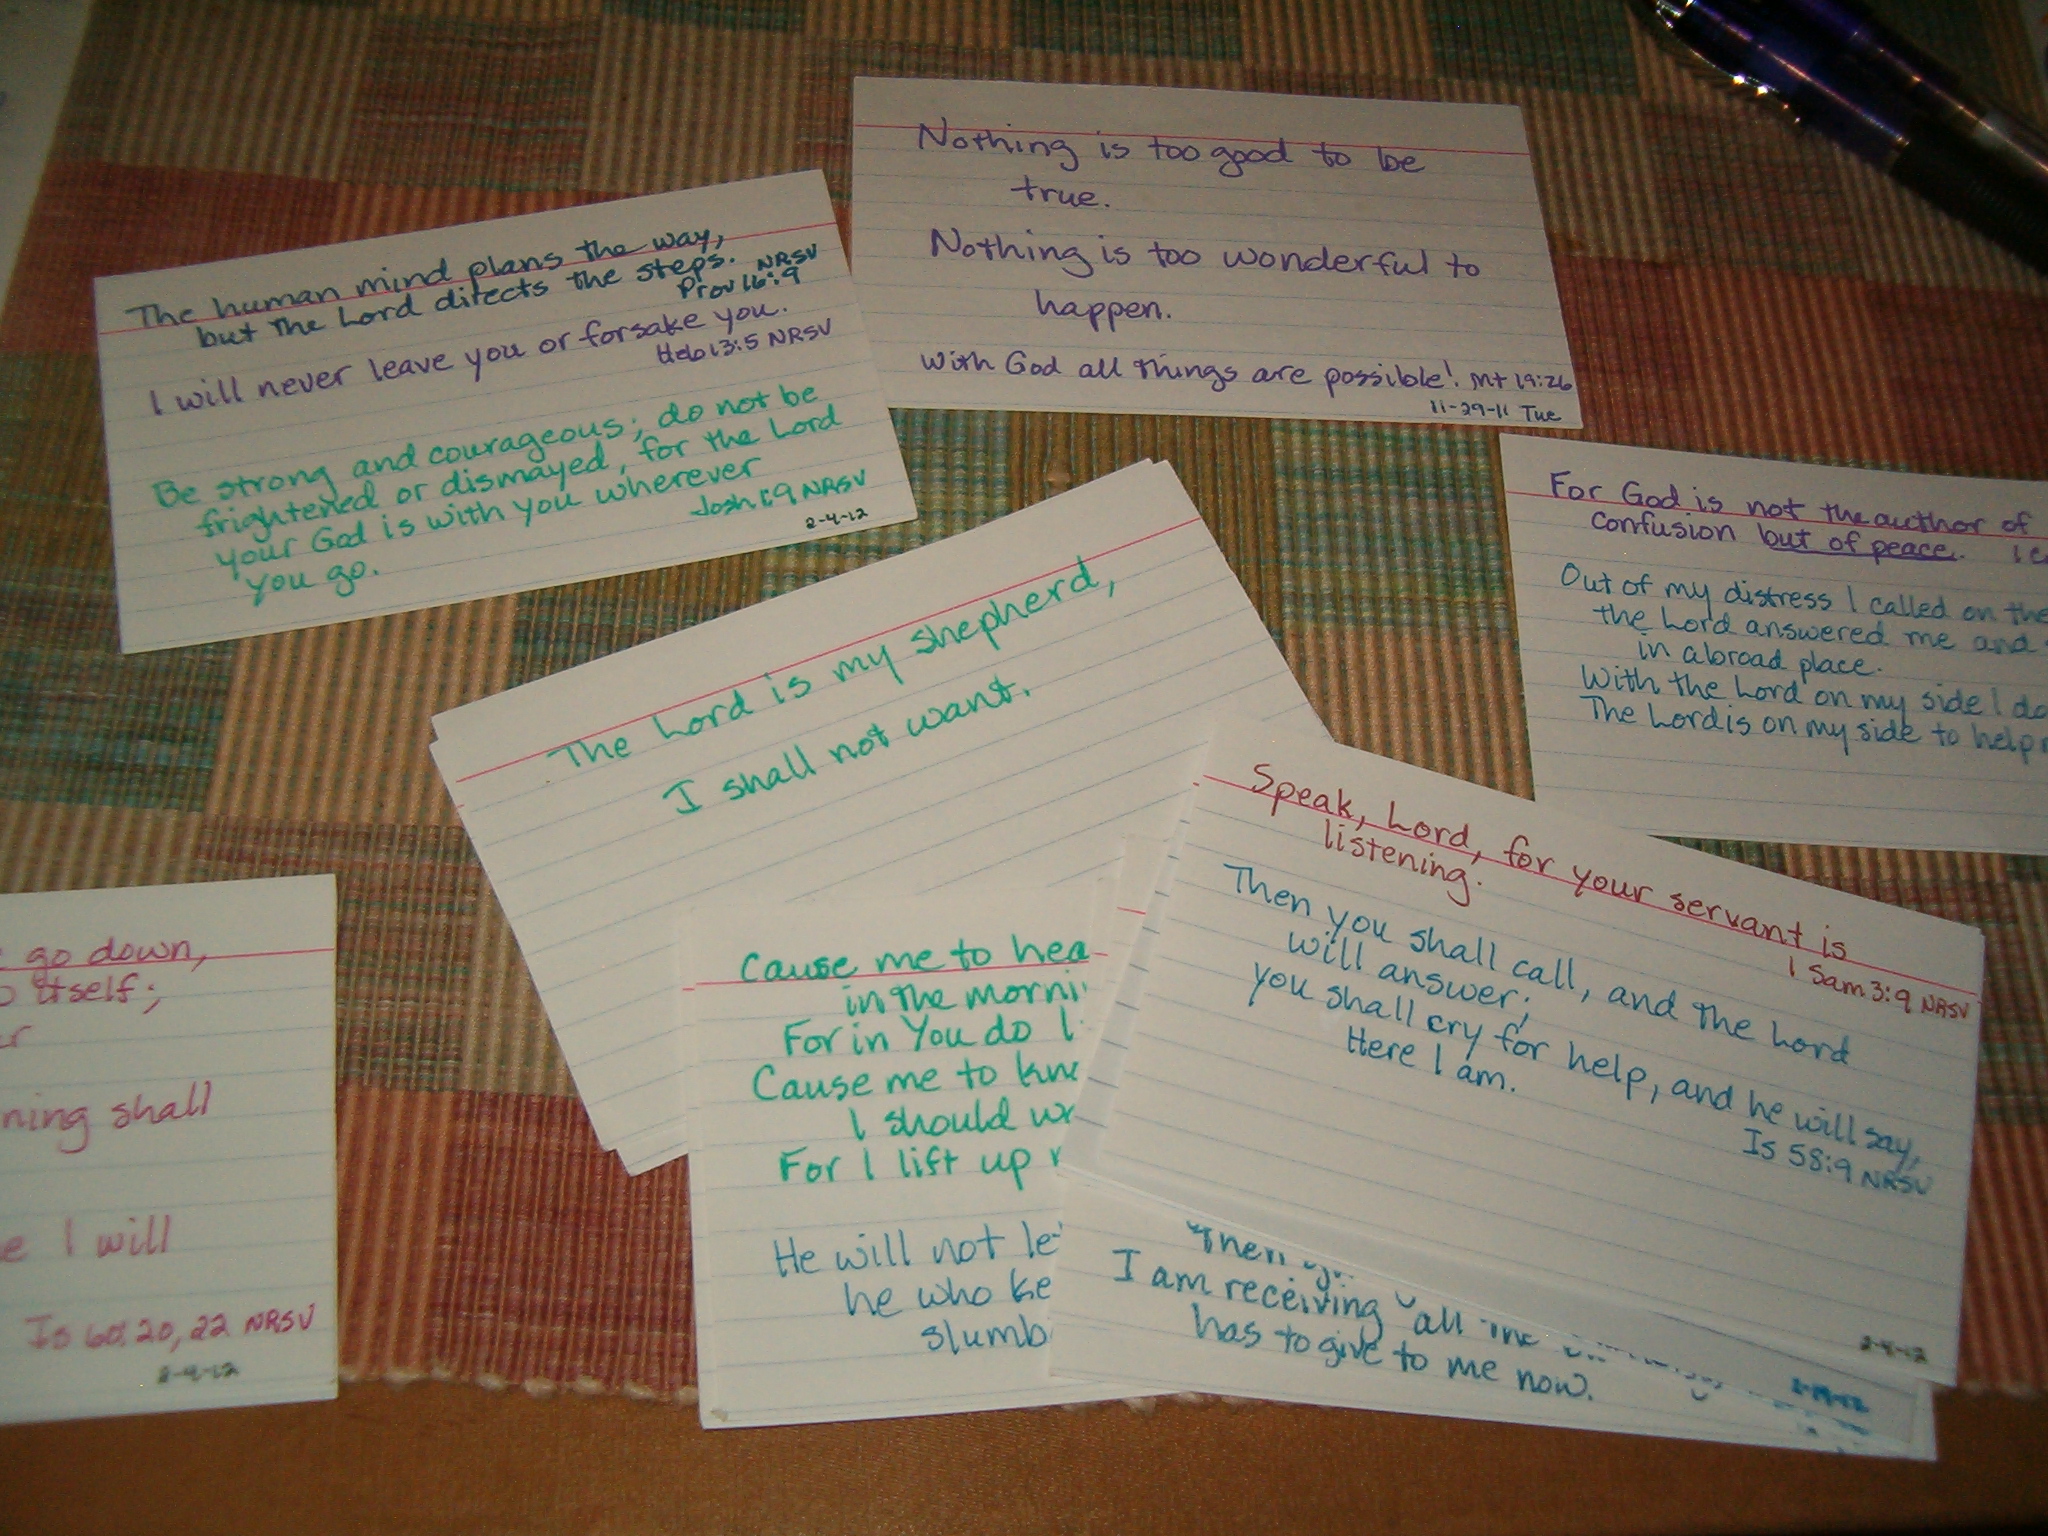 Nothing is too good to be
true.
Nothing is too wonderful to
happen.
With God all things are possible! Mt 19:26
11-29-11 Tue
The human mind plans the way,
but the Lord directs the steps. NRSV
Prov 16:9
I will never leave you or forsake you.
Heb 13:5 NRSV
Be strong and courageous; do not be
frightened or dismayed, for the Lord
your God is with you wherever
you go.
Josh 1:9 NRSV
2-4-12
For God is not the author of
confusion but of peace. 1
Out of my distress I called on the
the Lord answered me and
in a broad place.
With the Lord on my side I do
The Lord is on my side to help
The Lord is my shepherd,
I shall not want.
Speak, Lord, for your servant is
listening.
1 Sam 3:9 NRSV
Then you shall call, and the Lord
will answer;
you shall cry for help, and he will say,
Here I am.
Is 58:9 NRSV
2-4-12
go down,
itself;
ning shall
I will
Is 60:20, 22 NRSV
2-4-12
Cause me to hea
in the morni
For in You do
Cause me to kn
I should w
For I lift up
He will not le
he who ke
slumb
Then
I am receiving all the
has to give to me now.